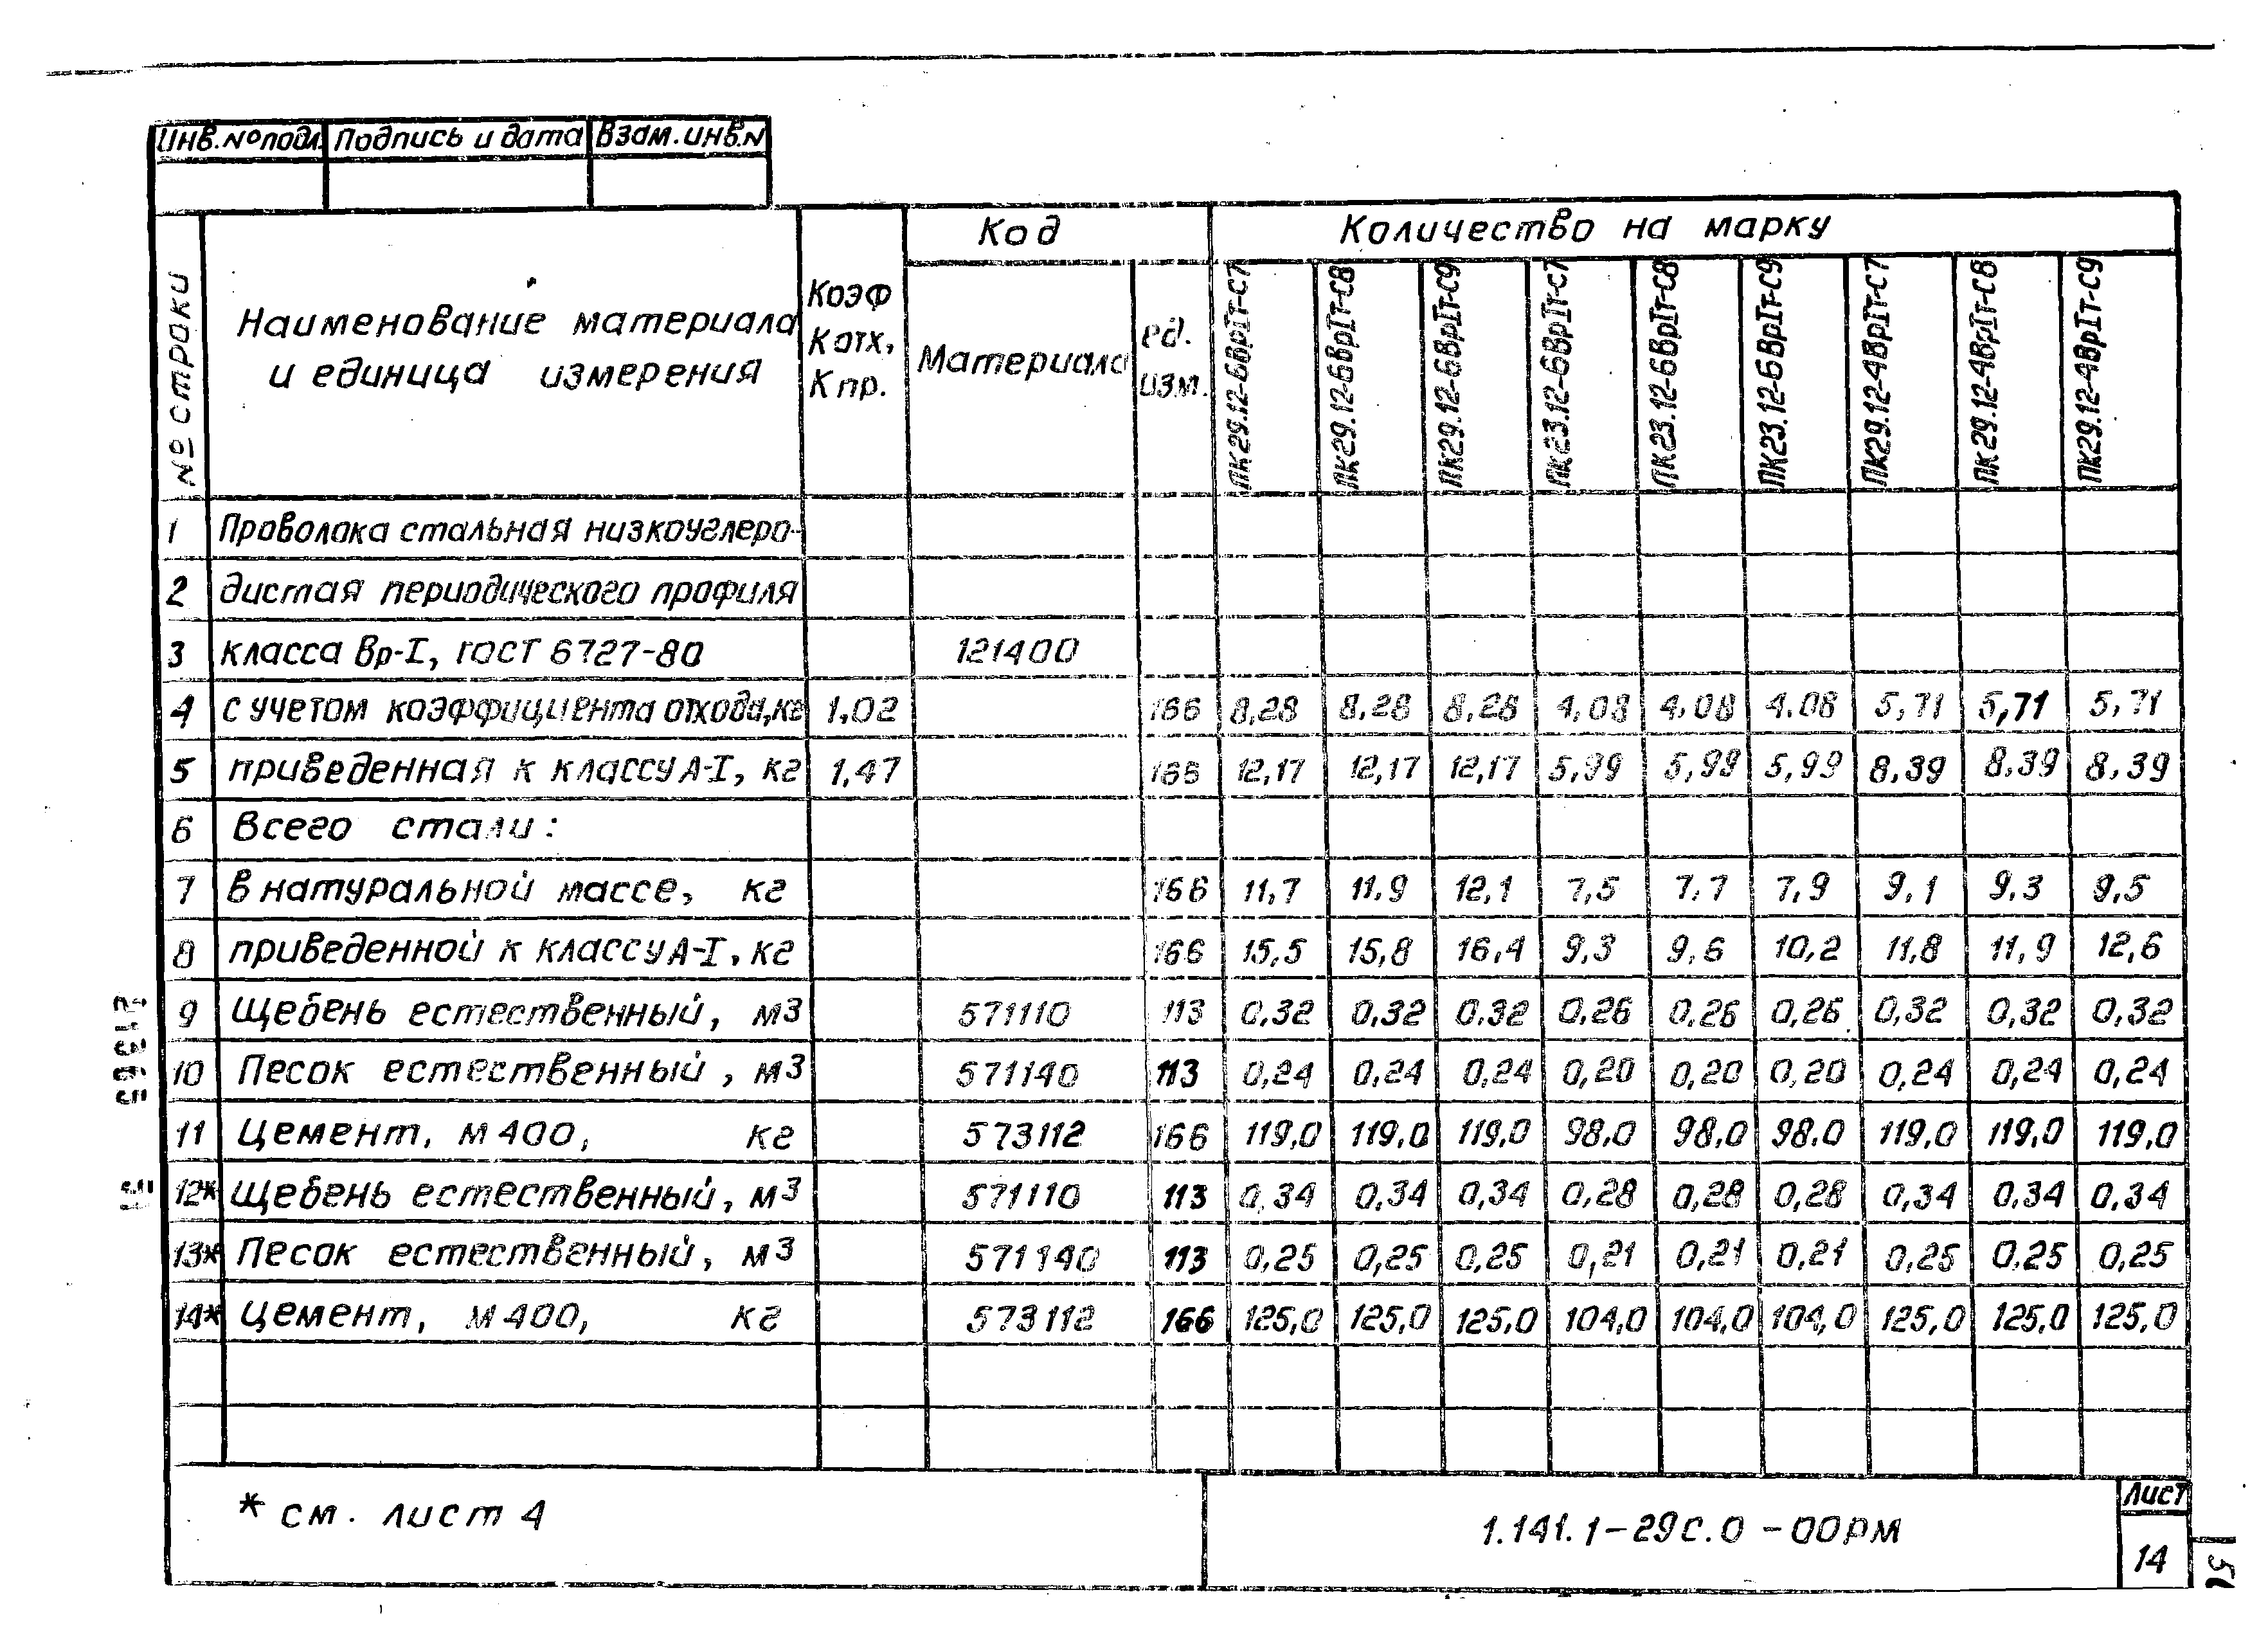 Инв.№подл. Подпись и дата Взам.инв.N
№ строки
Наименование материала
и единица измерения
Коэф
Котх,
Кпр.
Код
Материала
ед.
изм.
Количество на марку
ПК29.12-6ВрIт-с7
ПК29.12-6ВрIт-с8
ПК29.12-6ВрIт-с9
ПК23.12-6ВрIт-с7
ПК23.12-6ВрIт-с8
ПК23.12-6ВрIт-с9
ПК29.12-4ВрIт-с7
ПК29.12-4ВрIт-с8
ПК29.12-4ВрIт-с9
1 Проволока стальная низкоуглеро-
2 дистая периодического профиля
3 класса Вр-I, ГОСТ 6727-80 121400
4 с учетом коэффициента отхода,кг 1.02 166 8,28 8,28 8,28 4,08 4,08 4.08 5,71 5,71 5,71
5 приведенная к классу А-I, кг 1,47 166 12,17 12,17 12,17 5,99 5,99 5,99 8,39 8,39 8,39
6 Всего стали:
7 в натуральной массе, кг 166 11,7 11,9 12,1 7,5 7,7 7,9 9,1 9,3 9,5
8 приведенной к классу А-I, кг 166 15,5 15,8 16,4 9,3 9,6 10,2 11,8 11,9 12,6
9 Щебень естественный, м3 571110 113 0,32 0,32 0,32 0,26 0,26 0,26 0,32 0,32 0,32
10 Песок естественный, м3 571140 113 0,24 0,24 0,24 0,20 0,20 0,20 0,24 0,24 0,24
11 Цемент, М400, кг 573112 166 119,0 119,0 119,0 98,0 98,0 98,0 119,0 119,0 119,0
12* Щебень естественный, м3 571110 113 0,34 0,34 0,34 0,28 0,28 0,28 0,34 0,34 0,34
13* Песок естественный, м3 571140 113 0,25 0,25 0,25 0,21 0,21 0,21 0,25 0,25 0,25
14* Цемент, М400, кг 573112 166 125,0 125,0 125,0 104,0 104,0 104,0 125,0 125,0 125,0
* см. лист 4
1.141.1-29с.0-00РМ
Лист
14
21365